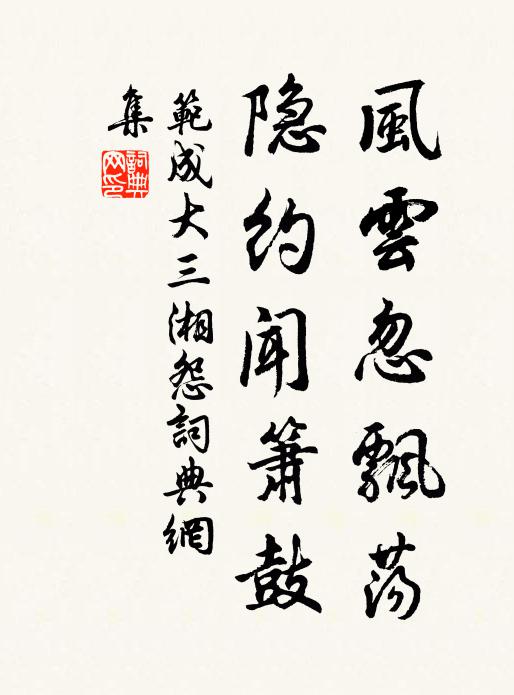 風雲忽飄蕩
隐約闻箫鼓
範成大三湘怨詞典網
集
詞典
网印